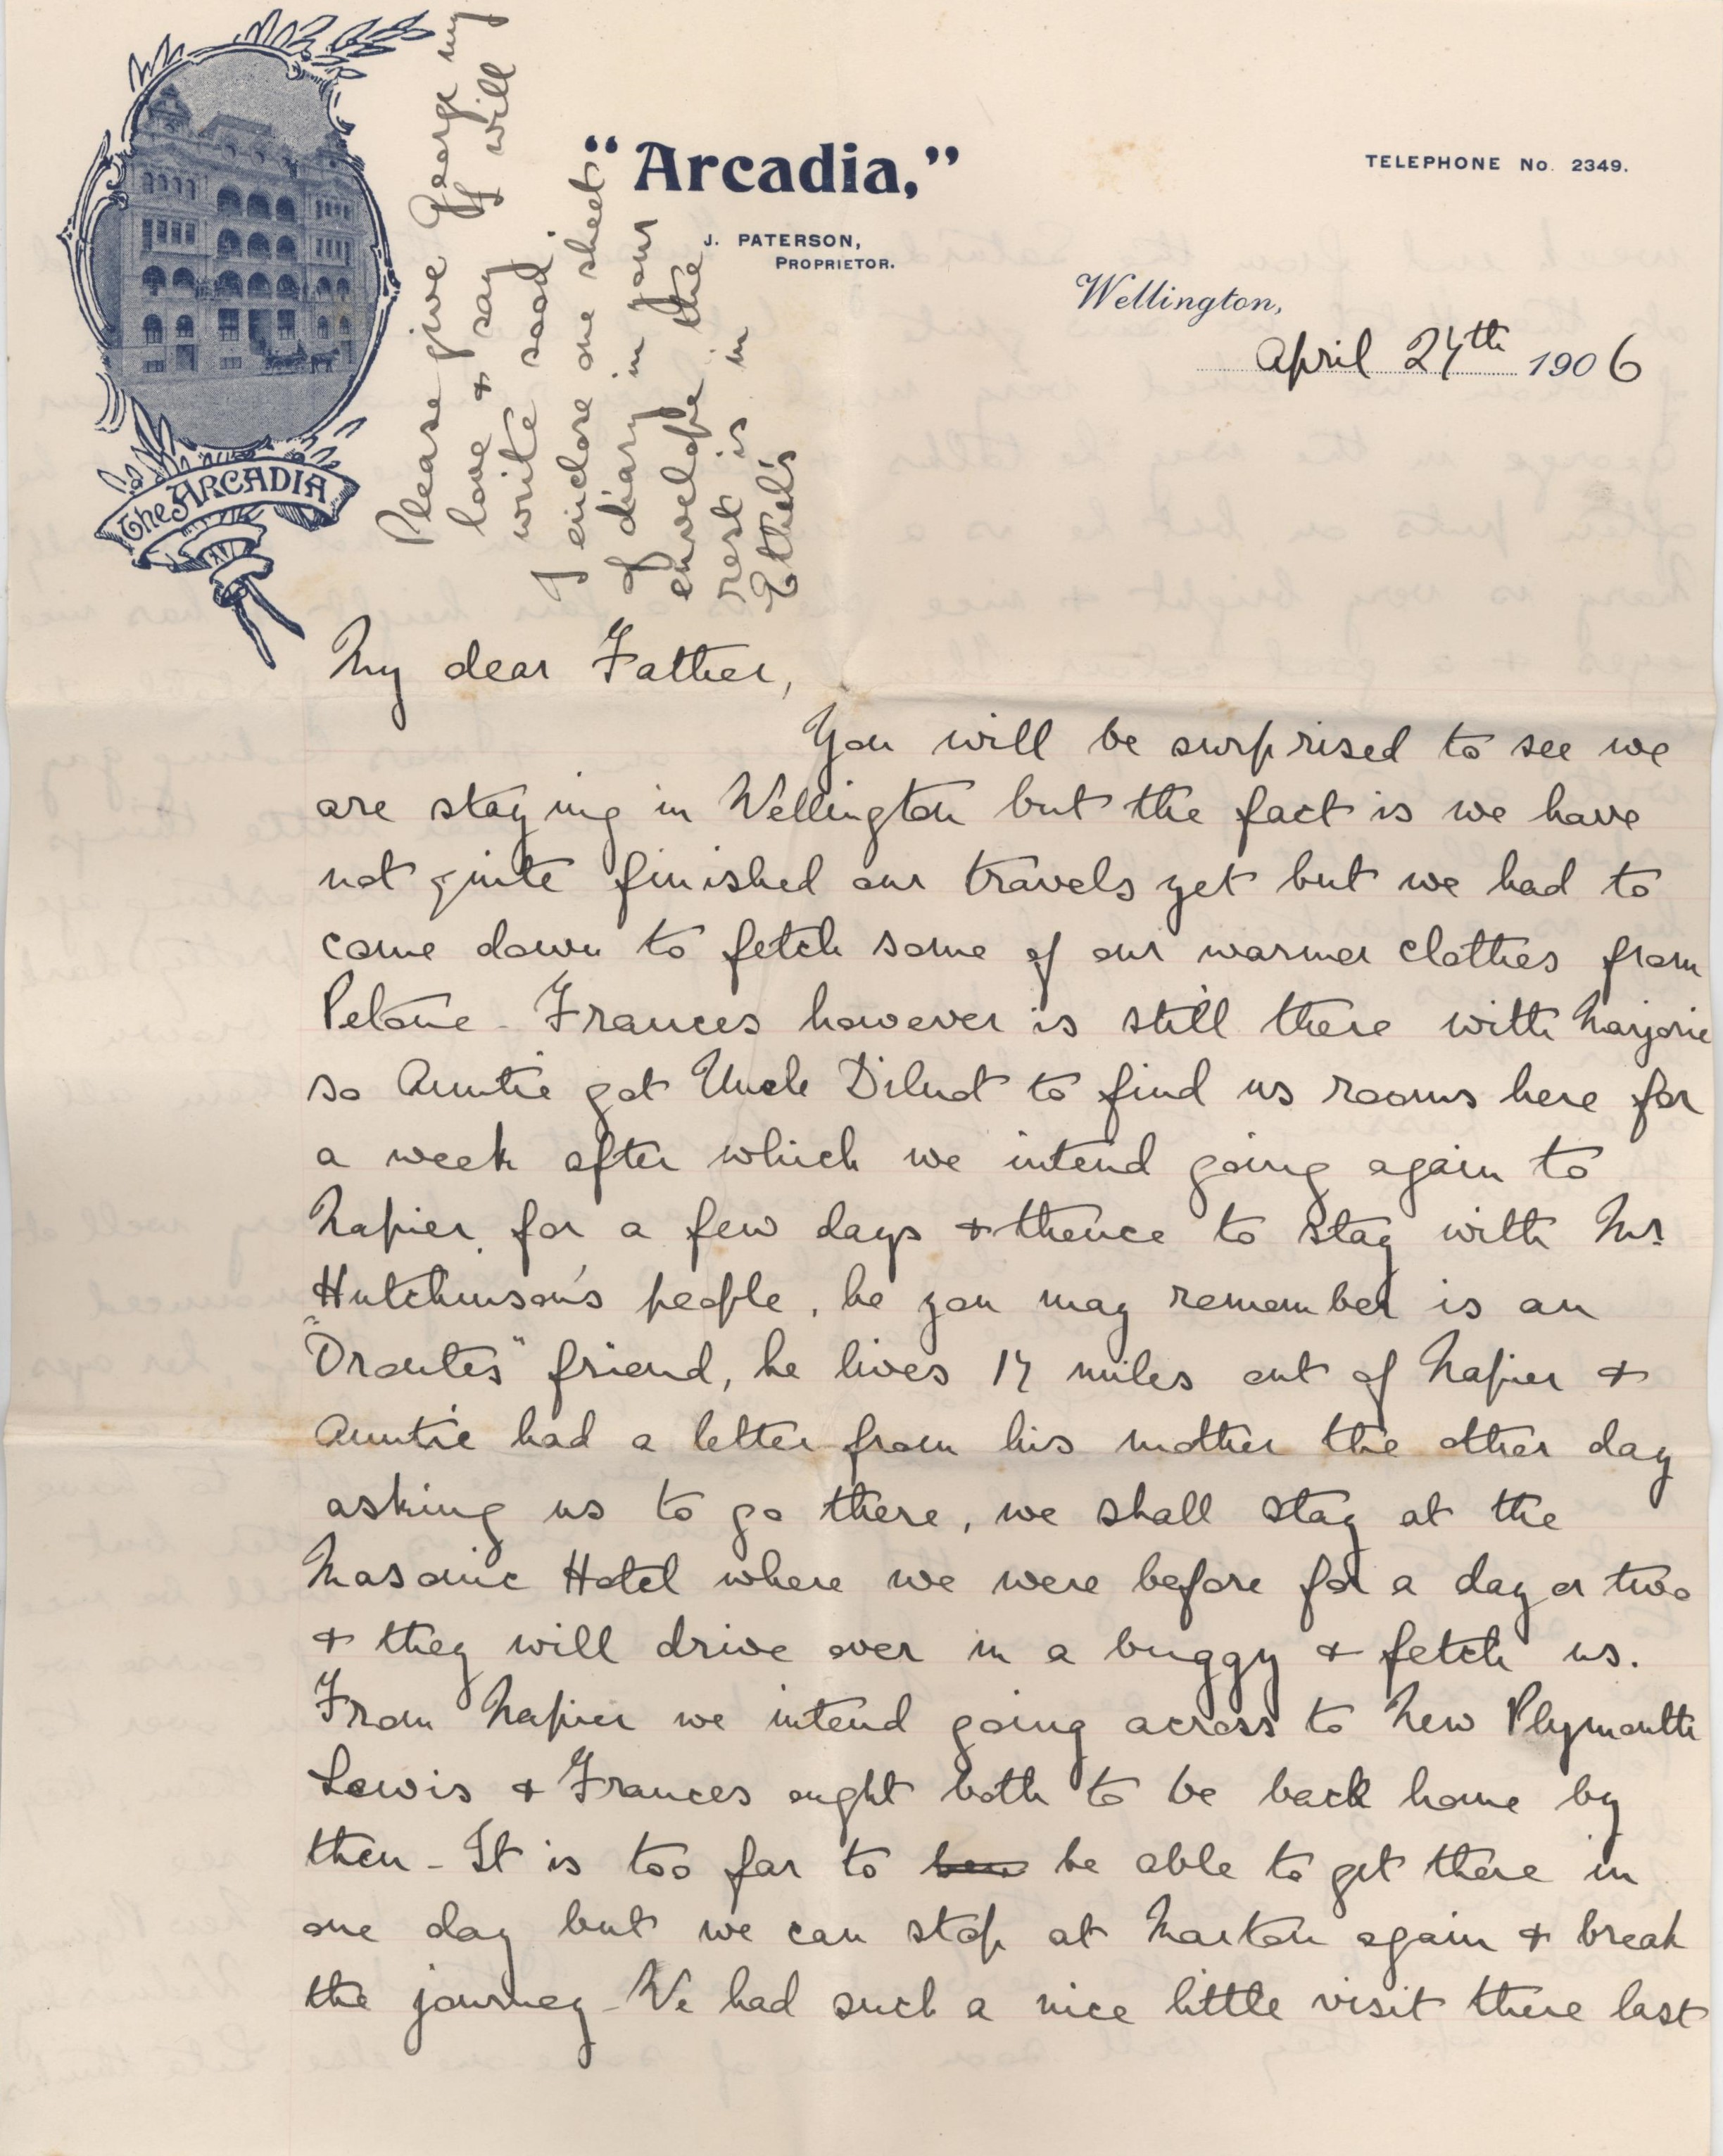 The ARCADIA
"Arcadia,"
J. PATERSON,
PROPRIETOR.
TELEPHONE No. 2349.
Wellington,
April 27th 1906
Please give George my
love & say I will
write soon.
I enclose one sheet
of diary in your
envelope the
rest is in
Ethel's
My dear Father,
You will be surprised to see we
are staying in Wellington but the fact is we have
not quite finished our travels yet but we had to
come down to fetch some of our warmer clothes from
Petone - Frances however is still there with Marjorie
so Auntie got Uncle Dilnot to find us rooms here for
a week after which we intend going again to
Napier, for a few days & thence to stay with Mr.
Hutchinson's people, he you may remember is an
"Orontes" friend, he lives 17 miles out of Napier &
Auntie had a letter from his mother the other day
asking us to go there, we shall stay at the
Masonic Hotel where we were before for a day or two
& they will drive over in a buggy & fetch us.
From Napier we intend going across to New Plymouth
Lewis & Frances ought both to be back home by
then - It is too far to be able to get there in
one day but we can stop at Marton again & break
the journey - We had such a nice little visit there last